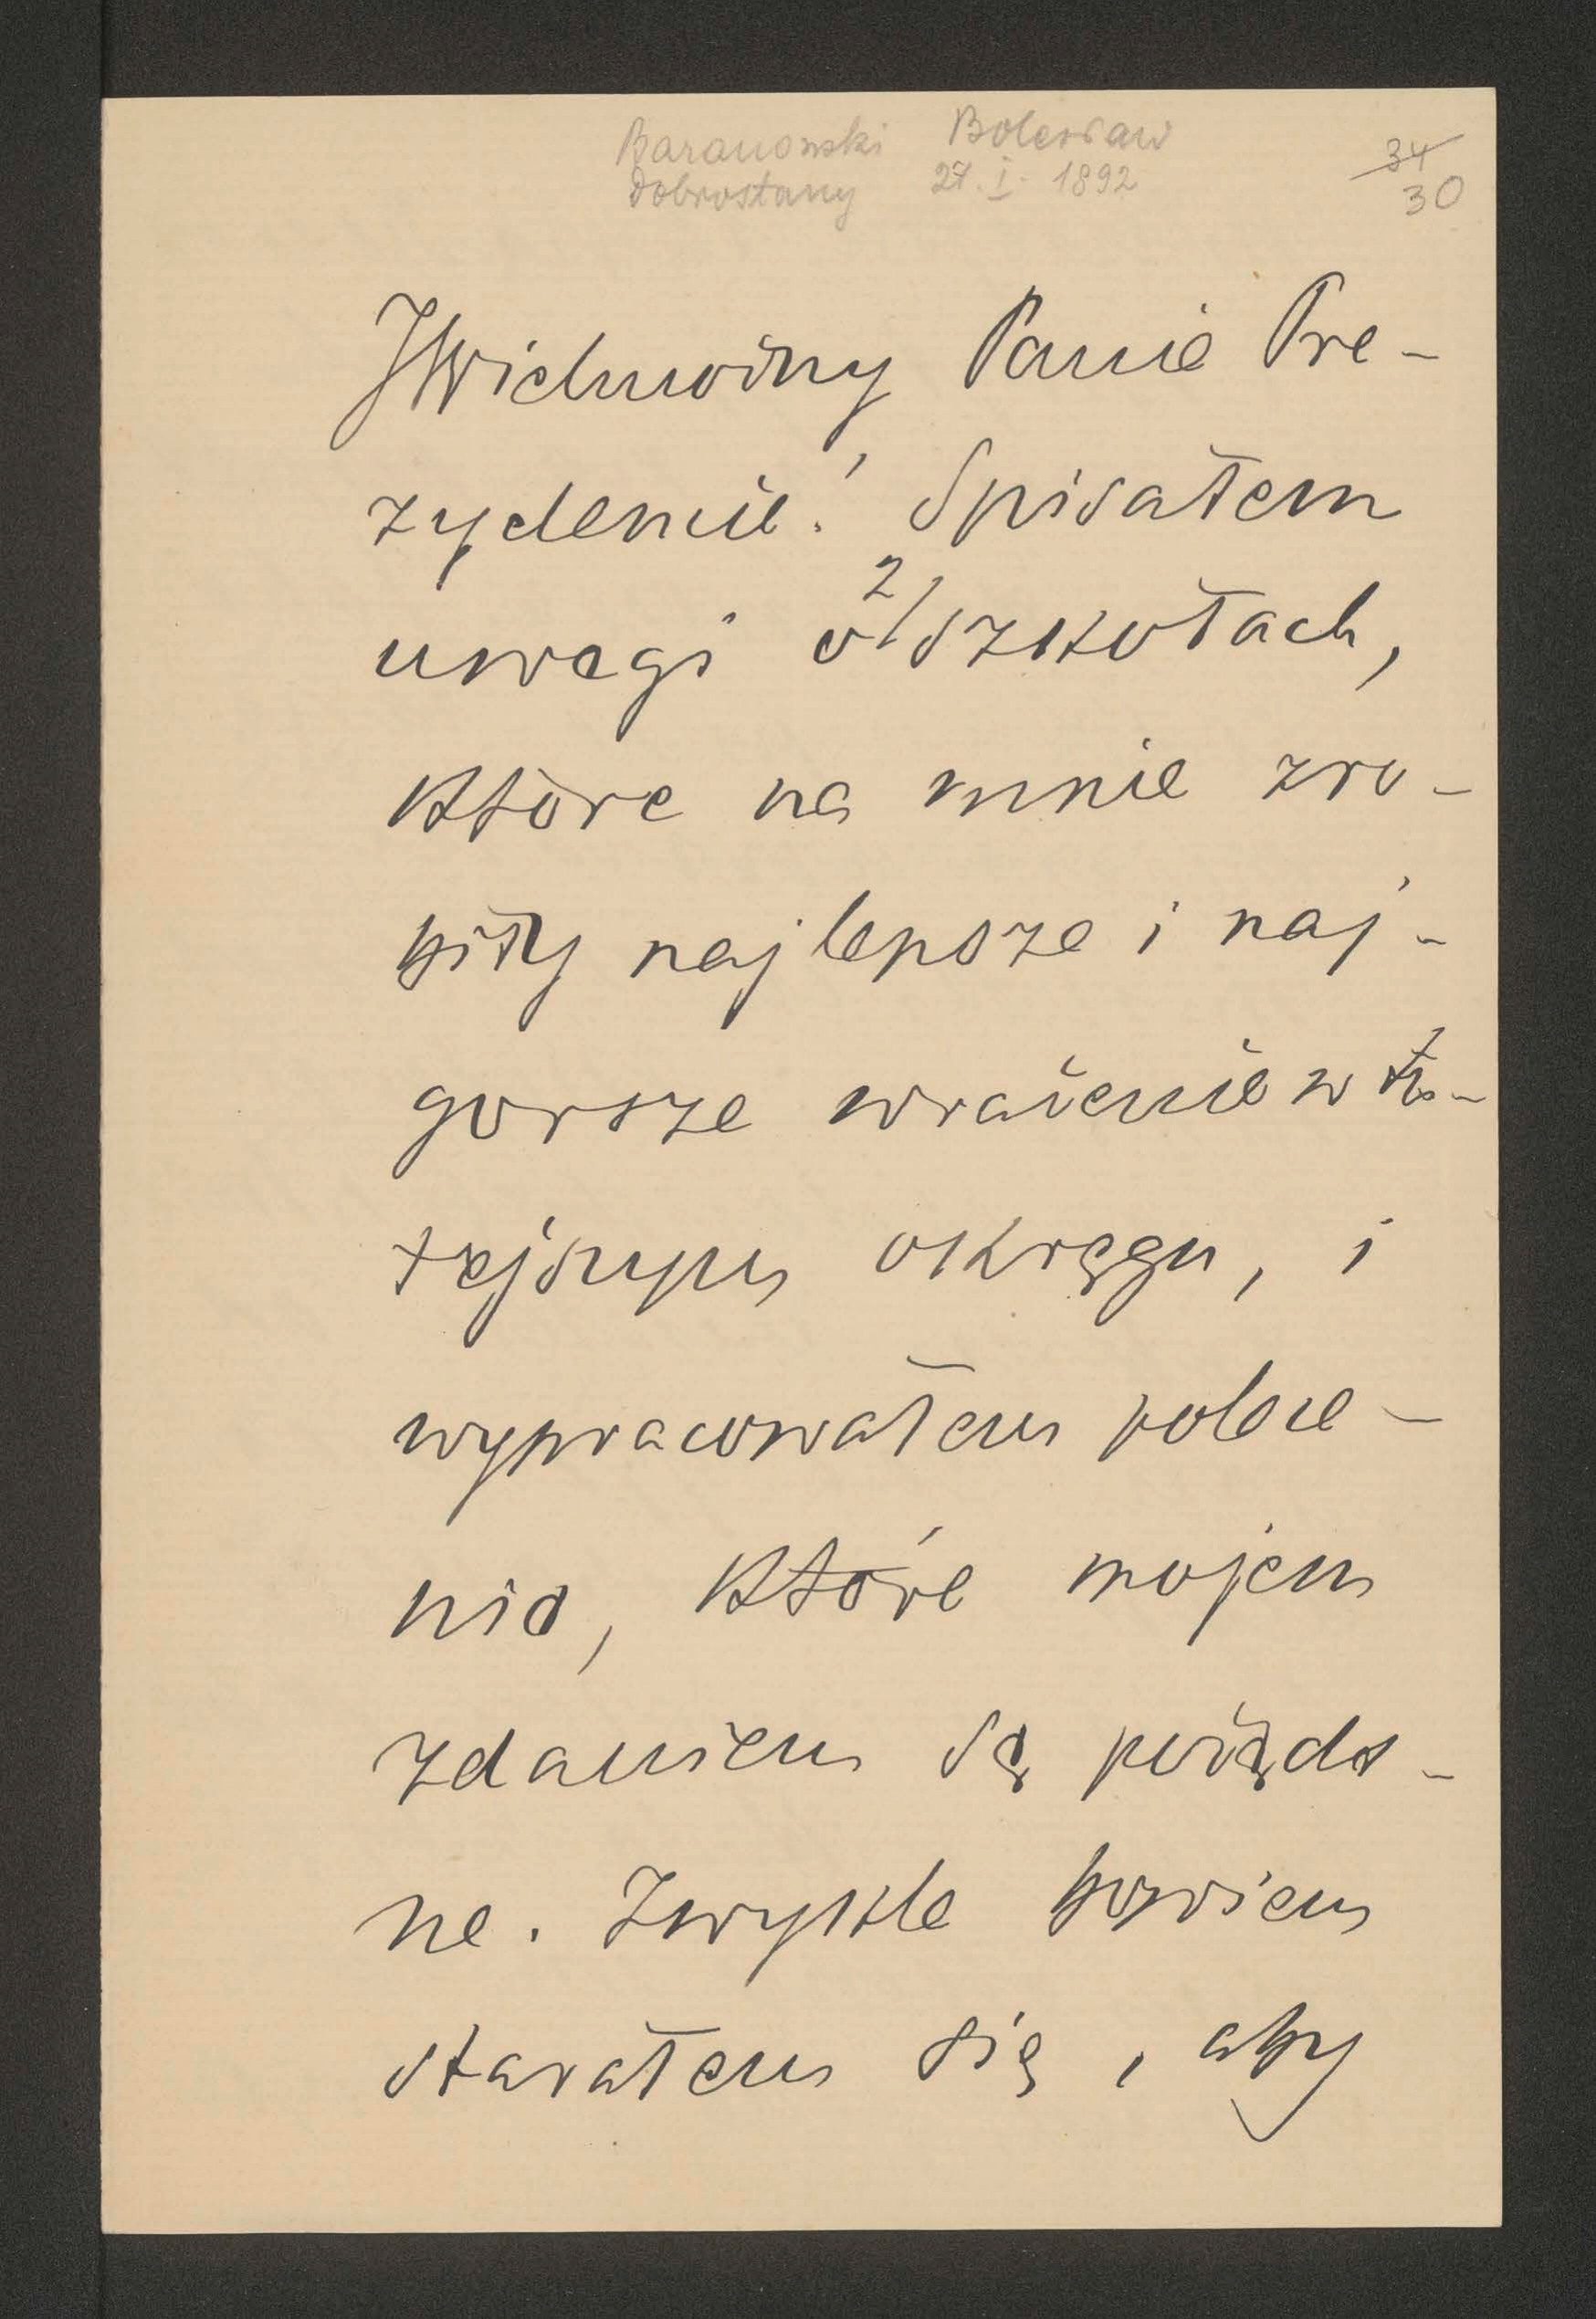 Baranowski Bolesław
Dobrostany 27. I. 1892
34
30
JWielmożny Panie Pre-
zydencie! Spisałem
uwagi o 2/ szkołach,
które na mnie zro-
biły najlepsze i naj-
gorsze wrażenie w tu-
tejszym okręgu, i
wypracowałem polece-
nia, które mojem
zdaniem są pożąda-
ne. Zwykle bowiem
starałem się, aby